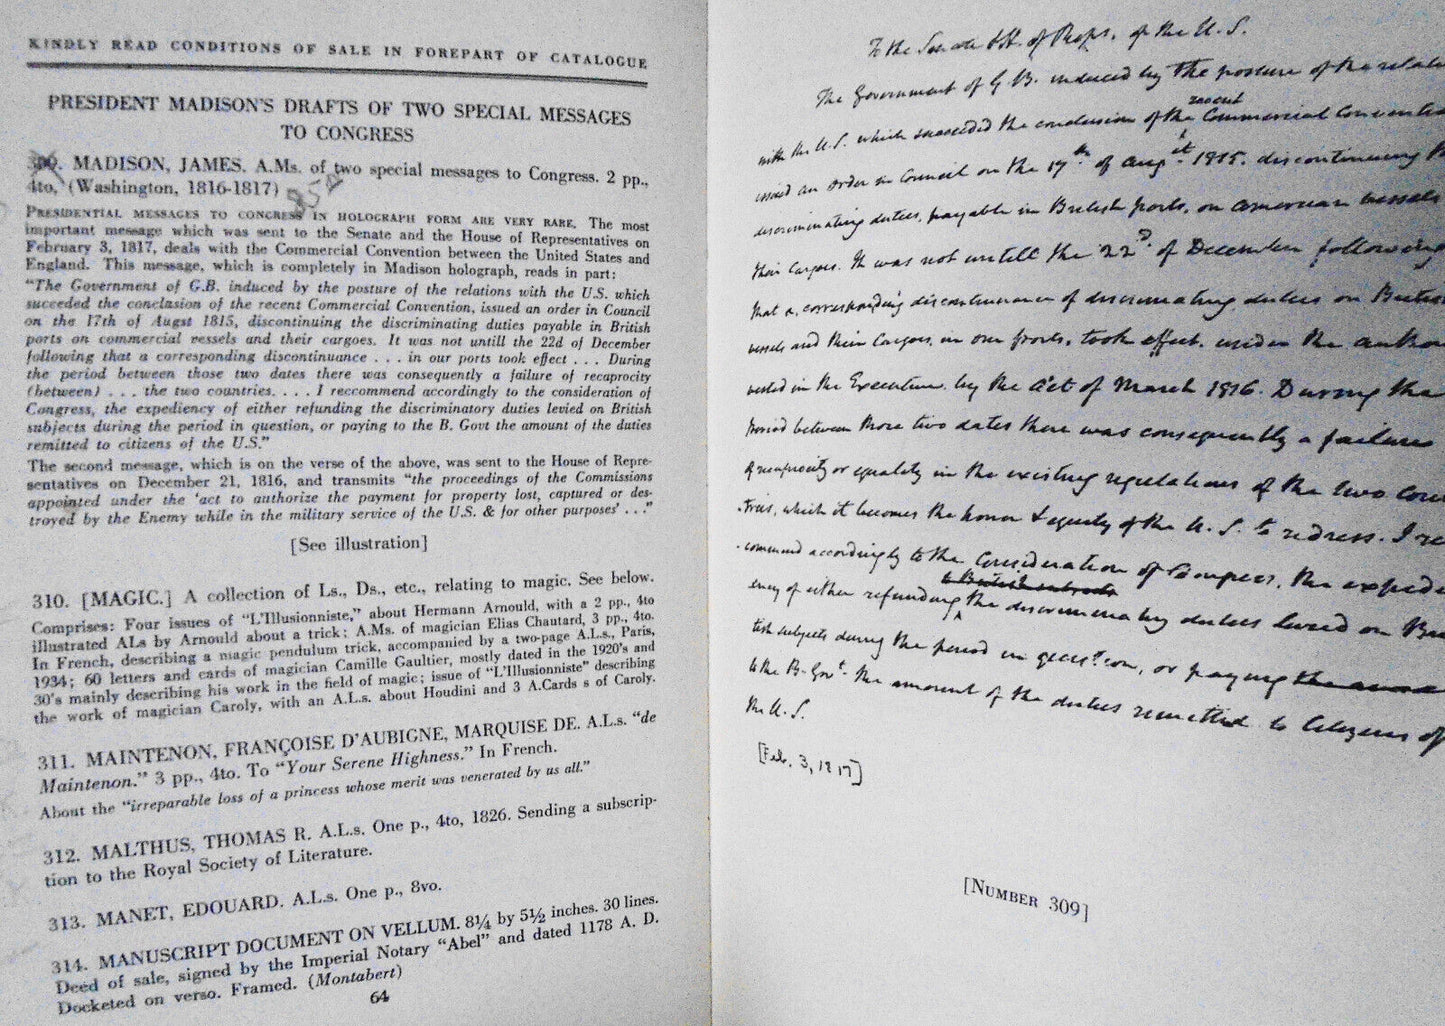 KINDLY READ CONDITIONS OF SALE IN FOREPART OF CATALOGUE
PRESIDENT MADISON'S DRAFTS OF TWO SPECIAL MESSAGES
TO CONGRESS
309. MADISON, JAMES. A.Ms. of two special messages to Congress. 2 pp.,
4to, (Washington, 1816-1817)
PRESIDENTIAL MESSAGES TO CONGRESS IN HOLOGRAPH FORM ARE VERY RARE. The most
important message which was sent to the Senate and the House of Representatives on
February 3, 1817, deals with the Commercial Convention between the United States and
England. This message, which is completely in Madison holograph, reads in part:
"The Government of G.B. induced by the posture of the relations with the U.S. which
succeeded the conclusion of the recent Commercial Convention, issued an order in Council
on the 17th of Augst 1815, discontinuing the discriminating duties payable in British
ports on commercial vessels and their cargoes. It was not untill the 22d of December
following that a corresponding discontinuance . . . in our ports took effect . . . During
the period between those two dates there was consequently a failure of recaprocity
(between) . . . the two countries. . . . I reccommend accordingly to the consideration of
Congress, the expediency of either refunding the discriminatory duties levied on British
subjects during the period in question, or paying to the B. Govt the amount of the duties
remitted to citizens of the U.S."
The second message, which is on the verse of the above, was sent to the House of Repre-
sentatives on December 21, 1816, and transmits "the proceedings of the Commissions
appointed under the 'act to authorize the payment for property lost, captured or des-
troyed by the Enemy while in the military service of the U.S. & for other purposes' . . ."
[See illustration]
310. [MAGIC.] A collection of Ls., Ds., etc., relating to magic. See below.
Comprises: Four issues of "L'Illusionniste," about Hermann Arnould, with a 2 pp., 4to
illustrated ALs by Arnould about a trick; A.Ms. of magician Elias Chautard, 3 pp., 4to.
In French, describing a magic pendulum trick, accompanied by a two-page A.L.s., Paris,
1934; 60 letters and cards of magician Camille Gaultier, mostly dated in the 1920's and
30's mainly describing his work in the field of magic; issue of "L'Illusionniste" describing
the work of magician Caroly, with an A.L.s. about Houdini and 3 A.Cards s of Caroly.
311. MAINTENON, FRANÇOISE D'AUBIGNE, MARQUISE DE. A.L.s. "de
Maintenon." 3 pp., 4to. To "Your Serene Highness." In French.
About the "irreparable loss of a princess whose merit was venerated by us all."
312. MALTHUS, THOMAS R. A.L.s. One p., 4to, 1826. Sending a subscrip-
tion to the Royal Society of Literature.
313. MANET, EDOUARD. A.L.s. One p., 8vo.
314. MANUSCRIPT DOCUMENT ON VELLUM. 8¼ by 5½ inches. 30 lines.
Deed of sale, signed by the Imperial Notary "Abel" and dated 1178 A. D.
Docketed on verso. Framed. (Montabert)
64
To the Senate & H. of Reps, of the U. S.
The Government of G B. induced by the posture of the relat
recent
with the U.S. which succeeded the conclusion of the Commercial Conventi
issued an order in Council on the 17th of Augst 1815, discontinuing
discriminating duties, payable in British ports, on American vessels
their Cargoes. It was not untill the 22d of December following
that a corresponding discontinuance of discriminating duties on British
vessels and their Cargoes, in our ports, took effect, under the autho
vested in the Executive, by the Act of March 1816. During the
period between those two dates there was consequently a failure
of reciprocity or equality in the existing regulations of the two Coun
tries, which it becomes the honor & equity of the U. S. to redress. I re
commend accordingly to the Consideration of Congress, the expedi
to British subjects
ency of either refunding the discriminatory duties levied on Bri
tish subjects during the period in question, or paying
to the B. Govt. the amount of the duties remitted to Citizens of
the U. S.
[Feb. 3, 1817]
[NUMBER 309]